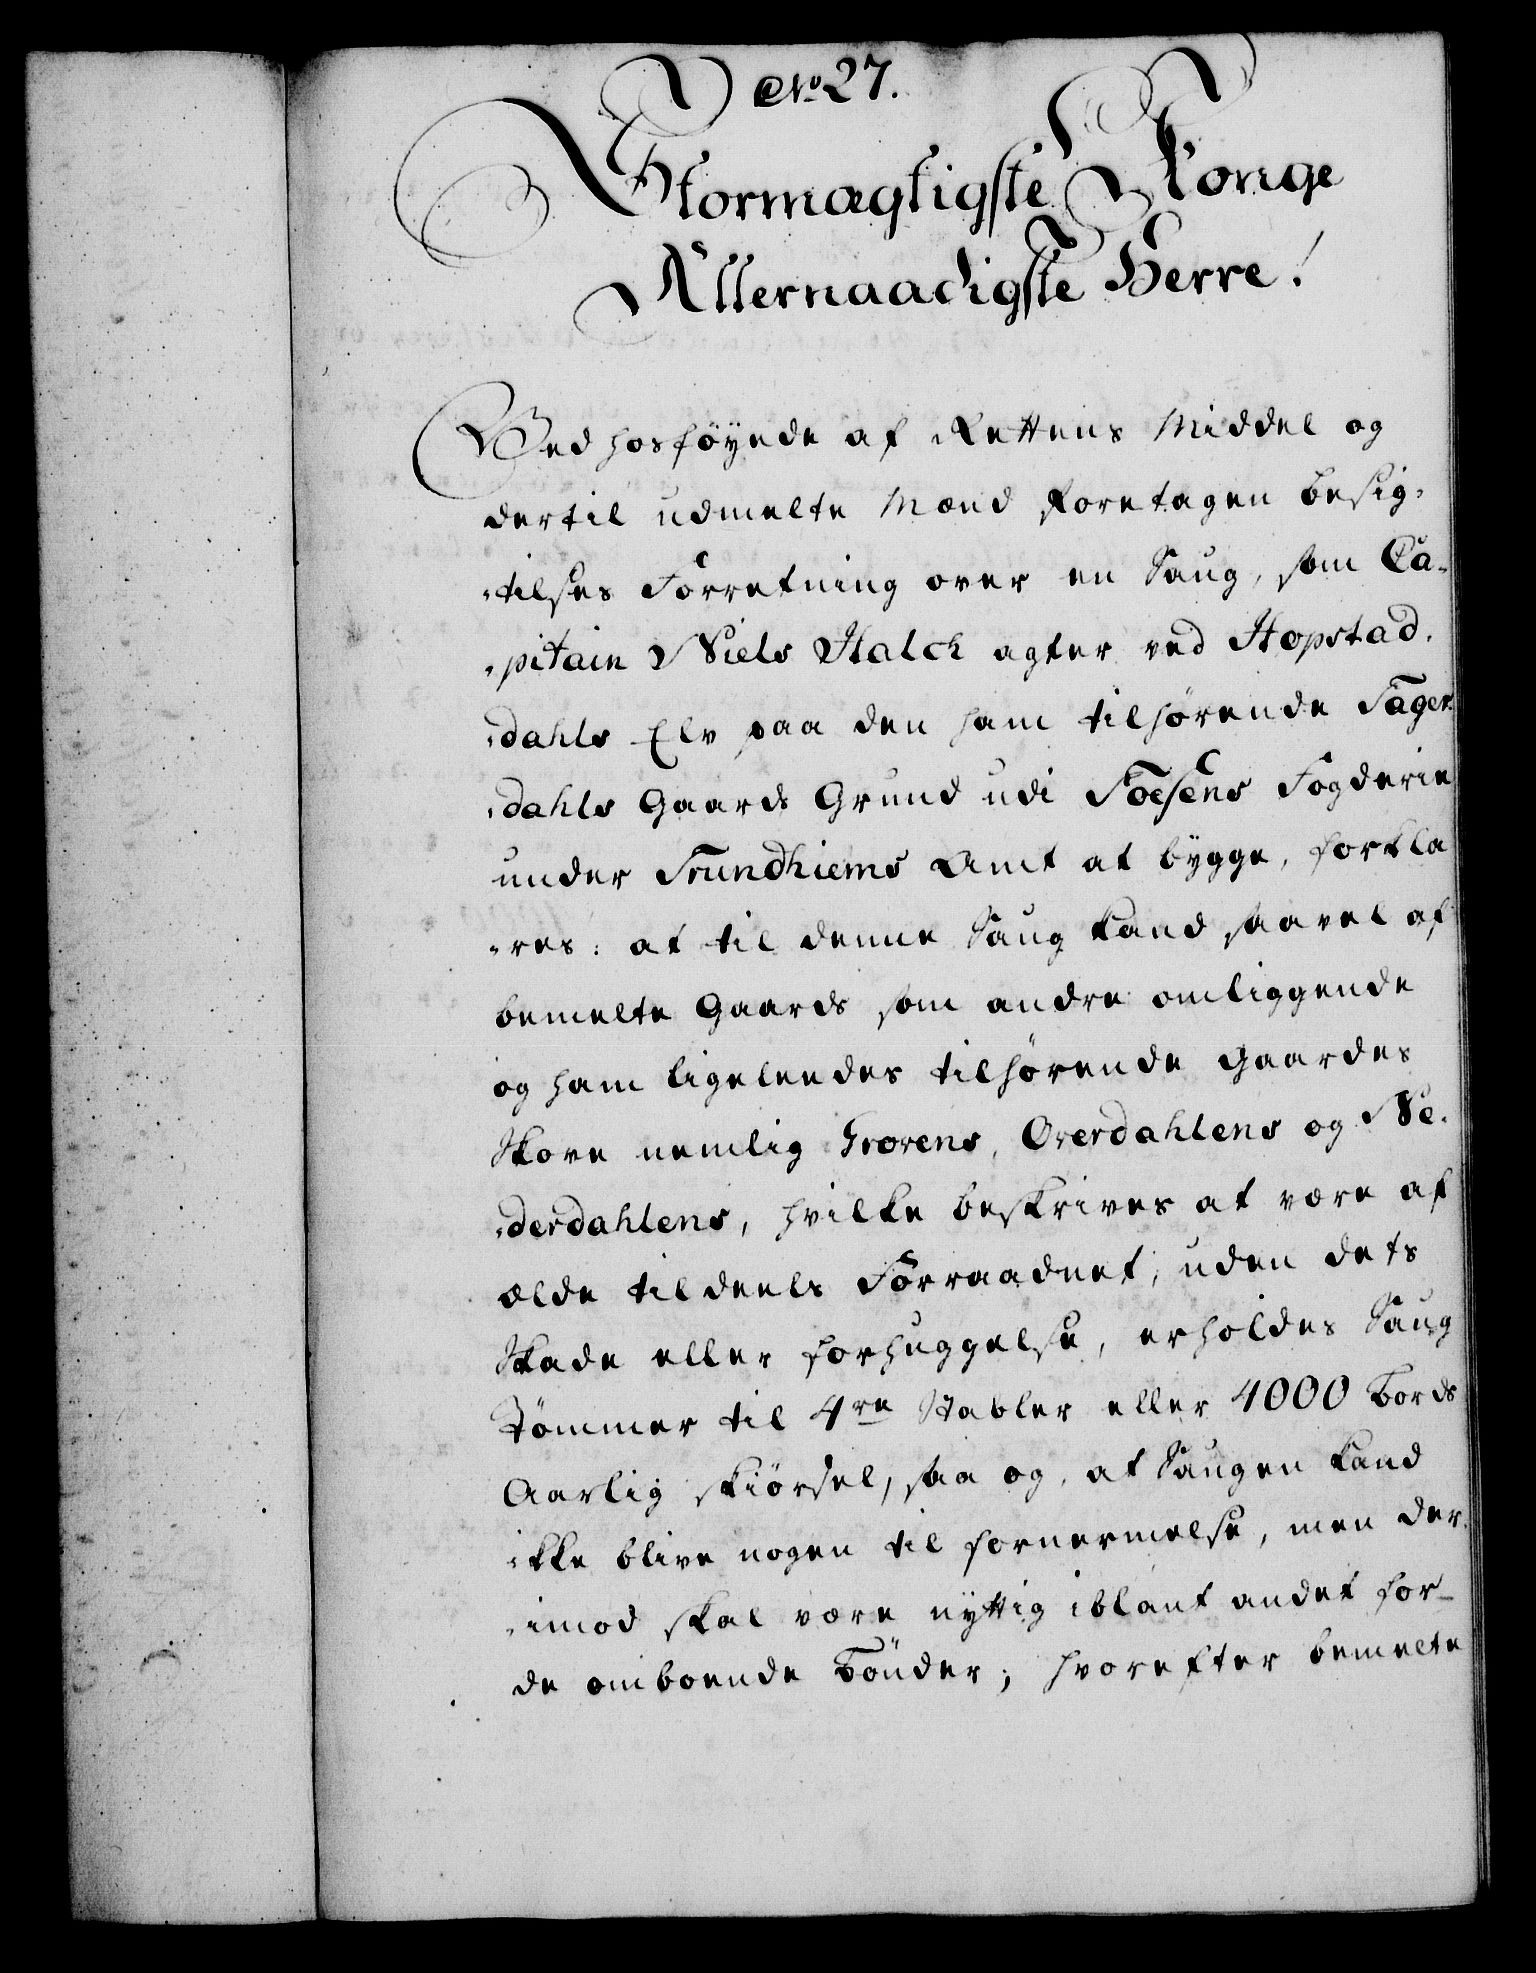 No 27.
Stormægtigste Konge
Allernaadigste Herre!
Ved hosföyede af Rettens Middel og
dertil udmelte Mænd foretagen besig-
-tilses Forretning over en Saug, som Ca-
-pitain Niels Kalck agter ved Hopstad-
-dahls Elv paa den ham tilhørende Fager-
-dahls Gaards Grund udi Foesens Fogderie
under Trundhiems Amt at bygge, forkla
-res: at til denne Saug kand saavel af
bemelte Gaards som andre omliggende
og ham ligeledes tilhørende Gaardes
Skove nemlig Overdahlens og Ne-
-derdahlens, hvilke beskrives at være af
ælde tildeels Forraadnet, uden dets
Skade eller forhuggelse, erholdes Saug
Tømmer til 4re Stabler eller 4000 Bords
Aarlig skiørsel, saa og, at Saugen kand
ikke blive nogen til fornermelse, men der-
-imod skal være nyttig iblant andet for
de omboende Bönder; hvorefter bemelte